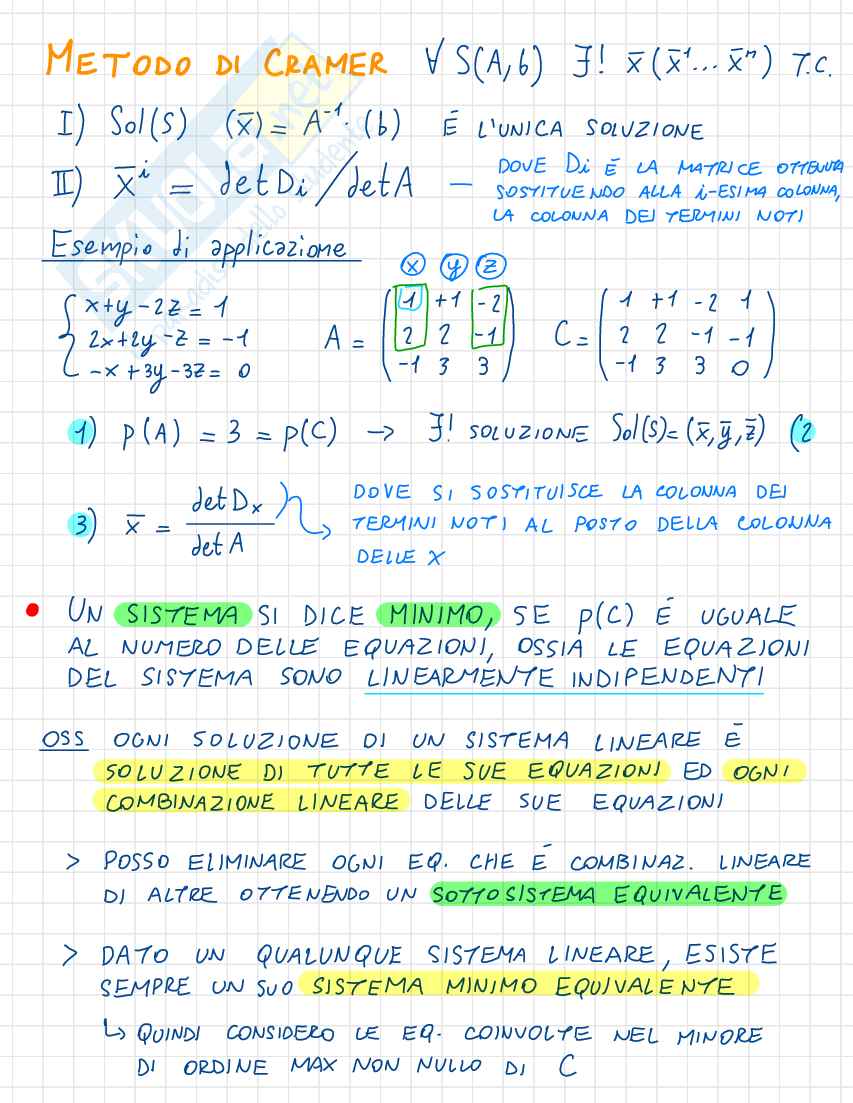 METODO DI CRAMER ∀ S(A,b) ∃! x̄(x̄¹... x̄ⁿ) T.C.
I) Sol(S) (x̄) = A⁻¹·(b) É L'UNICA SOLUZIONE
II) x̄ⁱ = det Di / det A — DOVE Di É LA MATRICE OTTENUTA
SOSTITUENDO ALLA i-ESIMA COLONNA,
LA COLONNA DEI TERMINI NOTI
Esempio di applicazione
x y z
{ x+y-2z = 1
2x+2y-z = -1
-x+3y-3z = 0
A = ( 1 +1 -2
2 2 -1
-1 3 3 )
C = ( 1 +1 -2 1
2 2 -1 -1
-1 3 3 0 )
1) ρ(A) = 3 = ρ(C) → ∃! SOLUZIONE Sol(S)=(x̄,ȳ,z̄) (2
3) x̄ = det Dx / det A
DOVE SI SOSTITUISCE LA COLONNA DEI
TERMINI NOTI AL POSTO DELLA COLONNA
DELLE X
• UN SISTEMA SI DICE MINIMO, SE ρ(C) É UGUALE
AL NUMERO DELLE EQUAZIONI, OSSIA LE EQUAZIONI
DEL SISTEMA SONO LINEARMENTE INDIPENDENTI
OSS OGNI SOLUZIONE DI UN SISTEMA LINEARE É
SOLUZIONE DI TUTTE LE SUE EQUAZIONI ED OGNI
COMBINAZIONE LINEARE DELLE SUE EQUAZIONI
> POSSO ELIMINARE OGNI EQ. CHE É COMBINAZ. LINEARE
DI ALTRE OTTENENDO UN SOTTOSISTEMA EQUIVALENTE
> DATO UN QUALUNQUE SISTEMA LINEARE, ESISTE
SEMPRE UN SUO SISTEMA MINIMO EQUIVALENTE
↳ QUINDI CONSIDERO LE EQ. COINVOLTE NEL MINORE
DI ORDINE MAX NON NULLO DI C